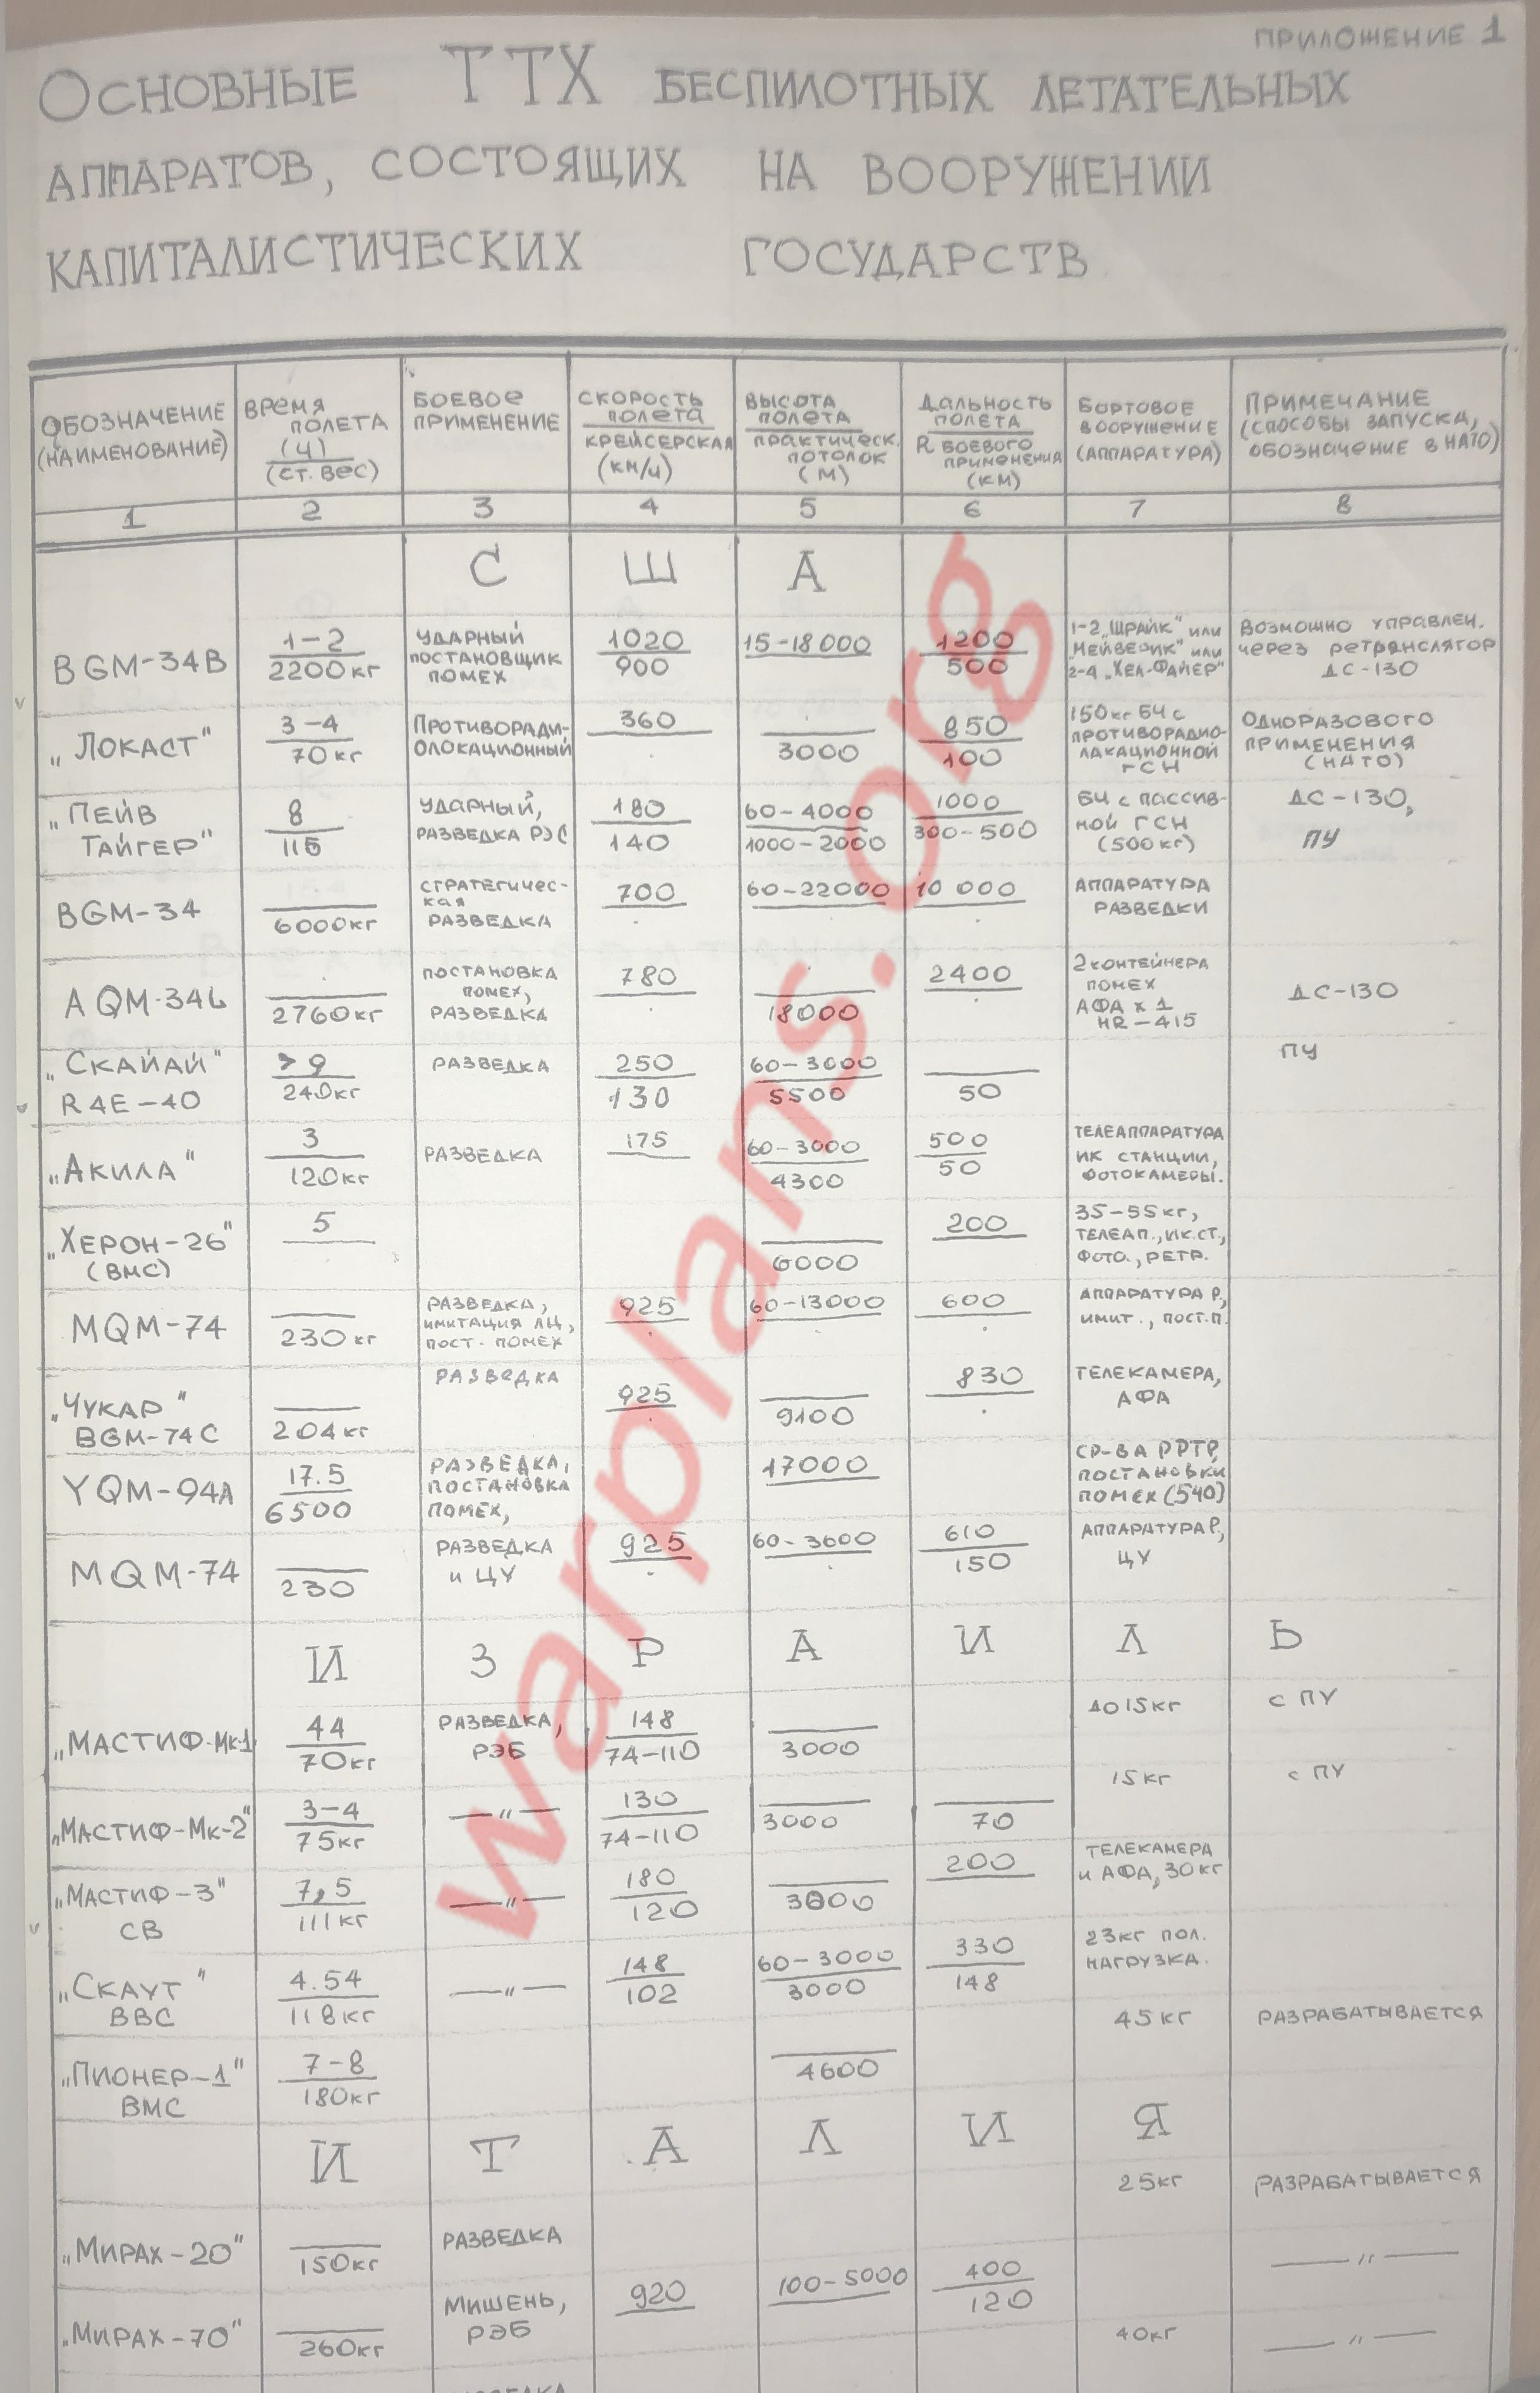 ПРИЛОЖЕНИЕ 1
ОСНОВНЫЕ ТТХ БЕСПИЛОТНЫХ ЛЕТАТЕЛЬНЫХ
АППАРАТОВ, СОСТОЯЩИХ НА ВООРУЖЕНИИ
КАПИТАЛИСТИЧЕСКИХ ГОСУДАРСТВ
ОБОЗНАЧЕНИЕ
(НАИМЕНОВАНИЕ)
ВРЕМЯ
ПОЛЕТА
(Ч)
(СТ. ВЕС)
БОЕВОЕ
ПРИМЕНЕНИЕ
СКОРОСТЬ
ПОЛЕТА
КРЕЙСЕРСКАЯ
(КМ/Ч)
ВЫСОТА
ПОЛЕТА
ПРАКТИЧЕСК.
ПОТОЛОК
(М)
ДАЛЬНОСТЬ
ПОЛЕТА
R БОЕВОГО
ПРИМЕНЕНИЯ
(КМ)
БОРТОВОЕ
ВООРУЖЕНИЕ
(АППАРАТУРА)
ПРИМЕЧАНИЕ
(СПОСОБЫ ЗАПУСКА,
ОБОЗНАЧЕНИЕ В НАТО)
1 2 3 4 5 6 7 8
С Ш А
BGM-34B
1-2
2200кг
УДАРНЫЙ
ПОСТАНОВЩИК
ПОМЕХ
1020
900
15-18000
1200
500
1-2 „ШРАЙК" ИЛИ
„МЕЙВЕРИК" ИЛИ
2-4 „ХЕЛ-ФАЙЕР"
ВОЗМОЖНО УПРАВЛЕН.
ЧЕРЕЗ РЕТРАНСЛЯТОР
ДС-130
„ЛОКАСТ"
3-4
70кг
ПРОТИВОРАДИ-
ОЛОКАЦИОННЫЙ
360
3000
850
100
150кг БЧ С
ПРОТИВОРАДИО-
ЛАКАЦИОННОЙ
ГСН
ОДНОРАЗОВОГО
ПРИМЕНЕНИЯ
(НАТО)
„ПЕЙВ
ТАЙГЕР"
8
115
УДАРНЫЙ,
РАЗВЕДКА РЭС
180
140
60-4000
1000-2000
1000
300-500
БЧ С ПАССИВ-
НОЙ ГСН
(500кг)
ДС-130,
ПУ
BGM-34
6000кг
СТРАТЕГИЧЕС-
КАЯ
РАЗВЕДКА
700
60-22000
10 000
АППАРАТУРА
РАЗВЕДКИ
AQM-34L
2760кг
ПОСТАНОВКА
ПОМЕХ,
РАЗВЕДКА
780
18000
2400
2 КОНТЕЙНЕРА
ПОМЕХ
АФА х 1
HR-415
ДС-130
„СКАЙАЙ"
R4E-40
>9
240кг
РАЗВЕДКА
250
130
60-3000
5500
50
ПУ
„АКИЛА"
3
120кг
РАЗВЕДКА
175
60-3000
4300
500
50
ТЕЛЕАППАРАТУРА
ИК СТАНЦИИ,
ФОТОКАМЕРЫ.
„ХЕРОН-26"
(ВМС)
5
6000
200
35-55кг,
ТЕЛЕАП., ИК.СТ.,
ФОТО., РЕТР.
MQM-74
230кг
РАЗВЕДКА,
ИМИТАЦИЯ ЛЦ,
ПОСТ. ПОМЕХ
925
60-13000
600
АППАРАТУРА Р.,
ИМИТ., ПОСТ.П.
„ЧУКАР"
BGM-74C
204кг
РАЗВЕДКА
925
9100
830
ТЕЛЕКАМЕРА,
АФА
YQM-94A
17.5
6500
РАЗВЕДКА,
ПОСТАНОВКА
ПОМЕХ,
17000
СР-ВА РРТР,
ПОСТАНОВКИ
ПОМЕХ (540)
MQM-74
230
РАЗВЕДКА
И ЦУ
925
60-3600
610
150
АППАРАТУРА Р.,
ЦУ
И З Р А И Л Ь
„МАСТИФ-Мк-1
44
70кг
РАЗВЕДКА,
РЭБ
148
74-110
3000
ДО 15кг
С ПУ
„МАСТИФ-Мк-2"
3-4
75кг
—„—
130
74-110
3000
70
15кг
С ПУ
„МАСТИФ-3"
СВ
7,5
111кг
—„—
180
120
3000
200
ТЕЛЕКАМЕРА
И АФА, 30кг
„СКАУТ"
ВВС
4.54
118кг
—„—
148
102
60-3000
3000
330
148
23кг ПОЛ.
НАГРУЗКА.
„ПИОНЕР-1"
ВМС
7-8
180кг
4600
45кг
РАЗРАБАТЫВАЕТСЯ
И Т А Л И Я
„МИРАХ-20"
150кг
РАЗВЕДКА
25кг
РАЗРАБАТЫВАЕТСЯ
„МИРАХ-70"
260кг
МИШЕНЬ,
РЭБ
920
100-5000
400
120
40кг
—„—
—„—
РАЗВЕДКА
warplans.org